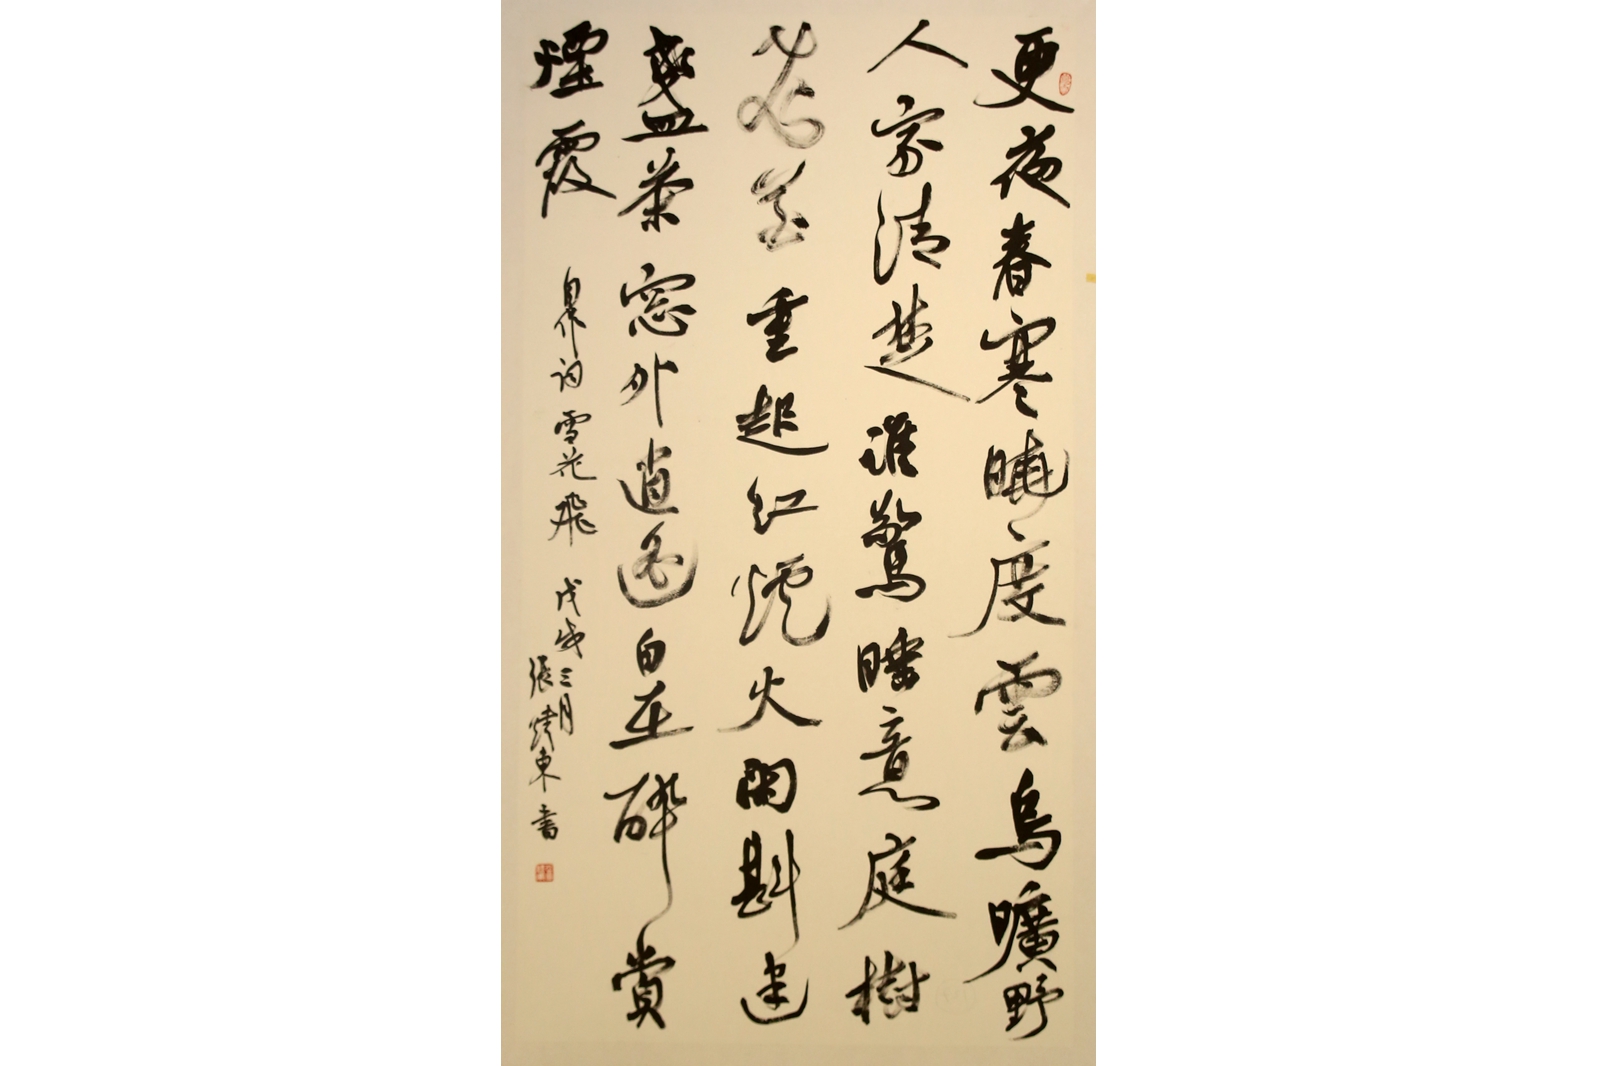 更夜春寒曉度雲烏曠野
人家清楚誰驚睡意庭樹
花落重起紅爐火閑斟建
盞茶窓外逍遙自在醉賞
煙霞
自作詞雪花飛 戊戌三月
張 東書